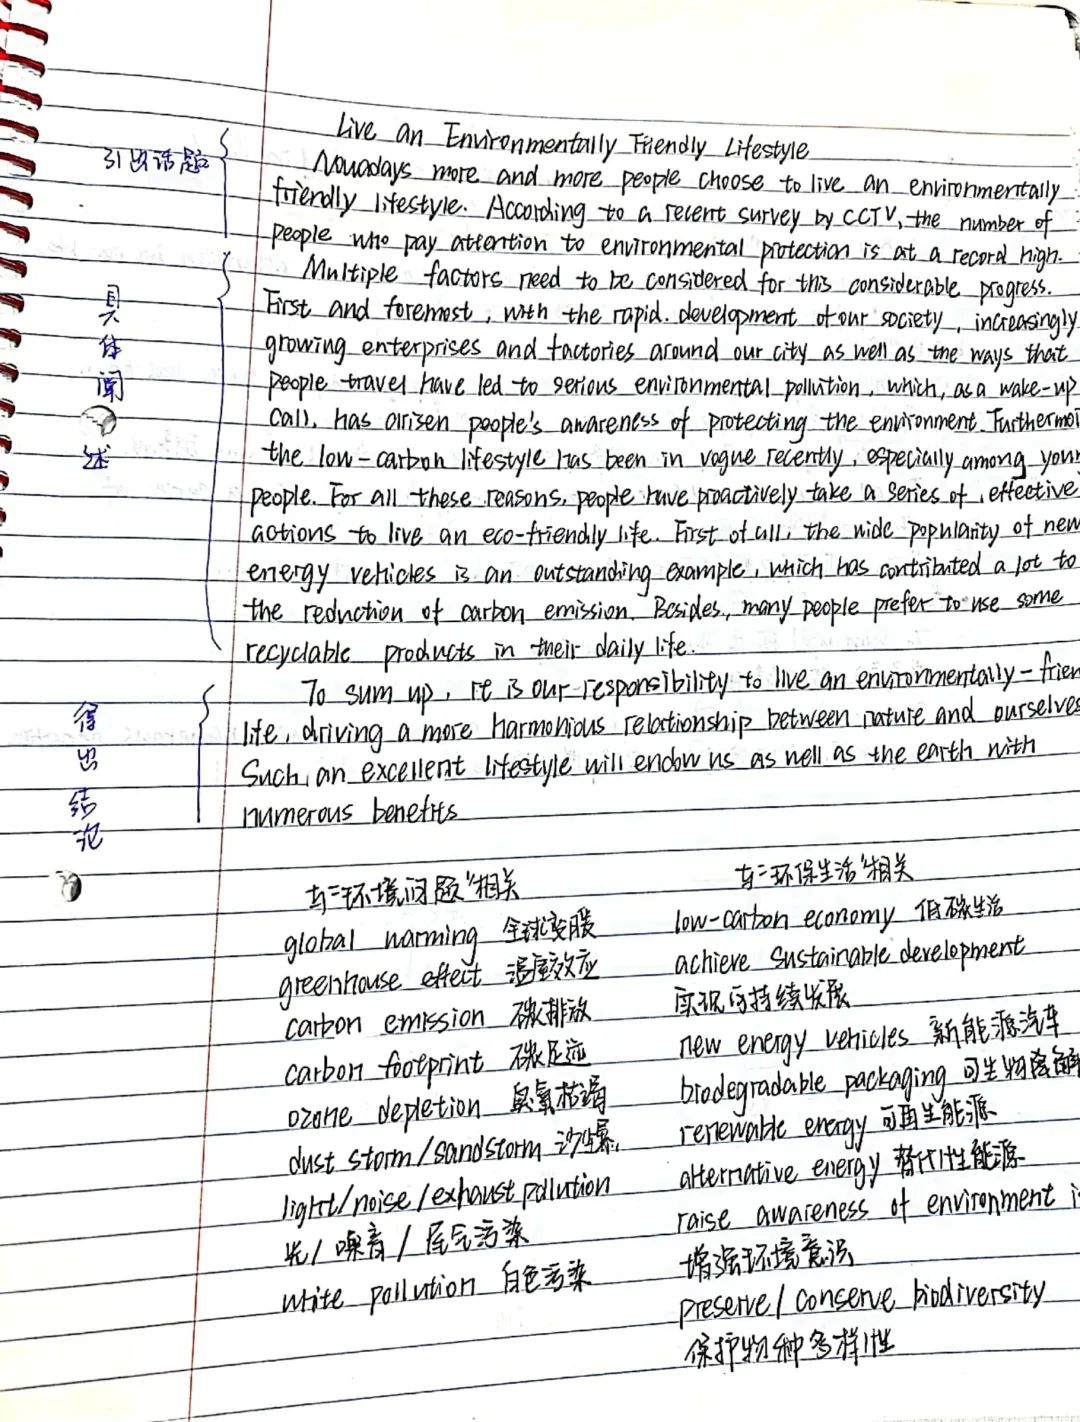 Live an Environmentally Friendly Lifestyle
引出话题
Nowadays more and more people choose to live an environmentally
friendly lifestyle. According to a recent survey by CCTV, the number of
people who pay attention to environmental protection is at a record high.
具体阐述
Multiple factors need to be considered for this considerable progress.
First and foremost, with the rapid development of our society, increasingly
growing enterprises and factories around our city as well as the ways that
people travel have led to serious environmental pollution, which, as a wake-up
call, has arisen people's awareness of protecting the environment. Furthermo
the low-carbon lifestyle has been in vogue recently, especially among youn
people. For all these reasons, people have proactively take a series of effective
actions to live an eco-friendly life. First of all, the wide popularity of new
energy vehicles is an outstanding example, which has contributed a lot to
the reduction of carbon emission. Besides, many people prefer to use some
recyclable products in their daily life.
得出结论
To sum up, it is our responsibility to live an environmentally-frien
life, driving a more harmonious relationship between nature and ourselves
Such an excellent lifestyle will endow us as well as the earth with
numerous benefits
与"环境问题"相关
global warming 全球变暖
greenhouse effect 温室效应
carbon emission 碳排放
carbon footprint 碳足迹
ozone depletion 臭氧枯竭
dust storm/sandstorm 沙尘暴
light/noise/exhaust pollution
光/噪音/尾气污染
white pollution 白色污染
与"环保生活"相关
low-carbon economy 低碳生活
achieve sustainable development
实现可持续发展
new energy vehicles 新能源汽车
biodegradable packaging 可生物降解
renewable energy 可再生能源
alternative energy 替代性能源
raise awareness of environment i
增强环境意识
preserve/conserve biodiversity
保护物种多样性